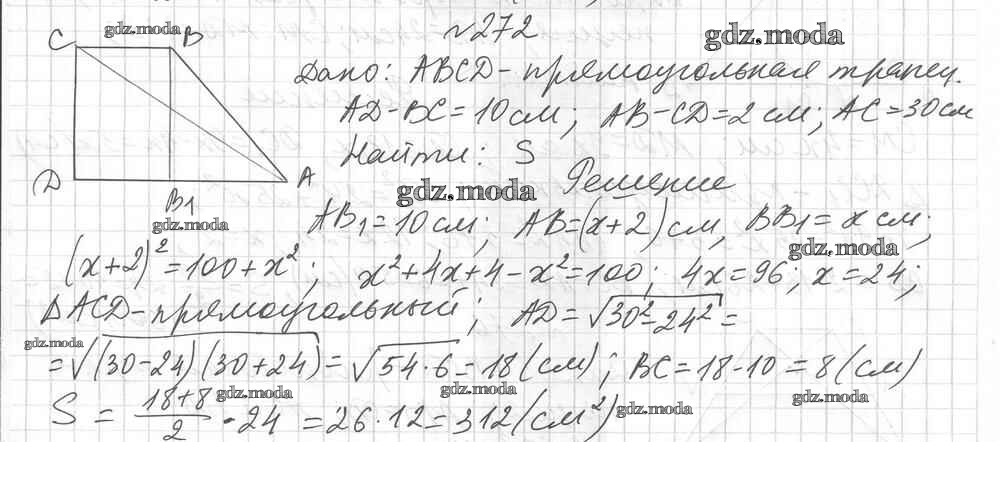 №272
C gdz.moda B gdz.moda
Дано: ABCD - прямоугольная трапец.
AD - BC = 10 см; AB - CD = 2 см; AC = 30 см
Найти: S
D A
gdz.moda Решение
B1
gdz.moda
AB1 = 10 см; AB = (x+2) см, BB1 = x см;
gdz.moda
(x+2)² = 100 + x²; x² + 4x + 4 - x² = 100; 4x = 96; x = 24;
ΔACD - прямоугольный; AD = √30² - 24² =
gdz.moda
= √(30-24)(30+24) = √54·6 = 18 (см); BC = 18 - 10 = 8 (см)
gdz.moda gdz.moda gdz.moda
S = 18+8/2 · 24 = 26·12 = 312 (см²) gdz.moda